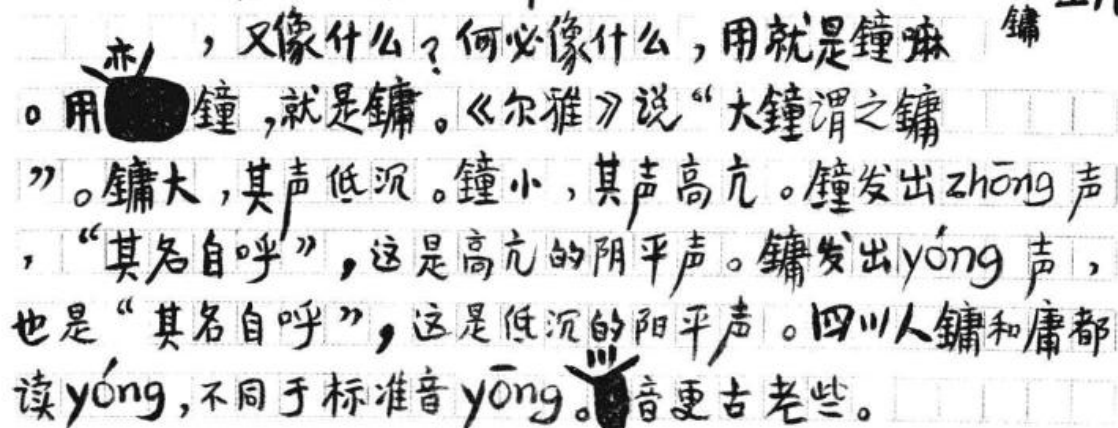 ，又像什么？何必像什么，用就是鐘嘛 鏞
。用亦鐘，就是鏞。《尔雅》说“大鐘谓之鏞
”。鏞大，其声低沉。鐘小，其声高亢。鐘发出zhōng声
，“其名自呼”，这是高亢的阴平声。鏞发出yóng声，
也是“其名自呼”，这是低沉的阳平声。四川人鏞和庸都
读yóng，不同于标准音yōng。川音更古老些。